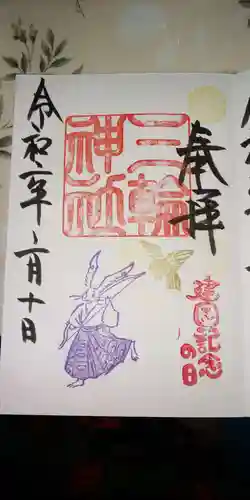 奉拝
建国記念の日
三輪
神社
令和二年二月十日